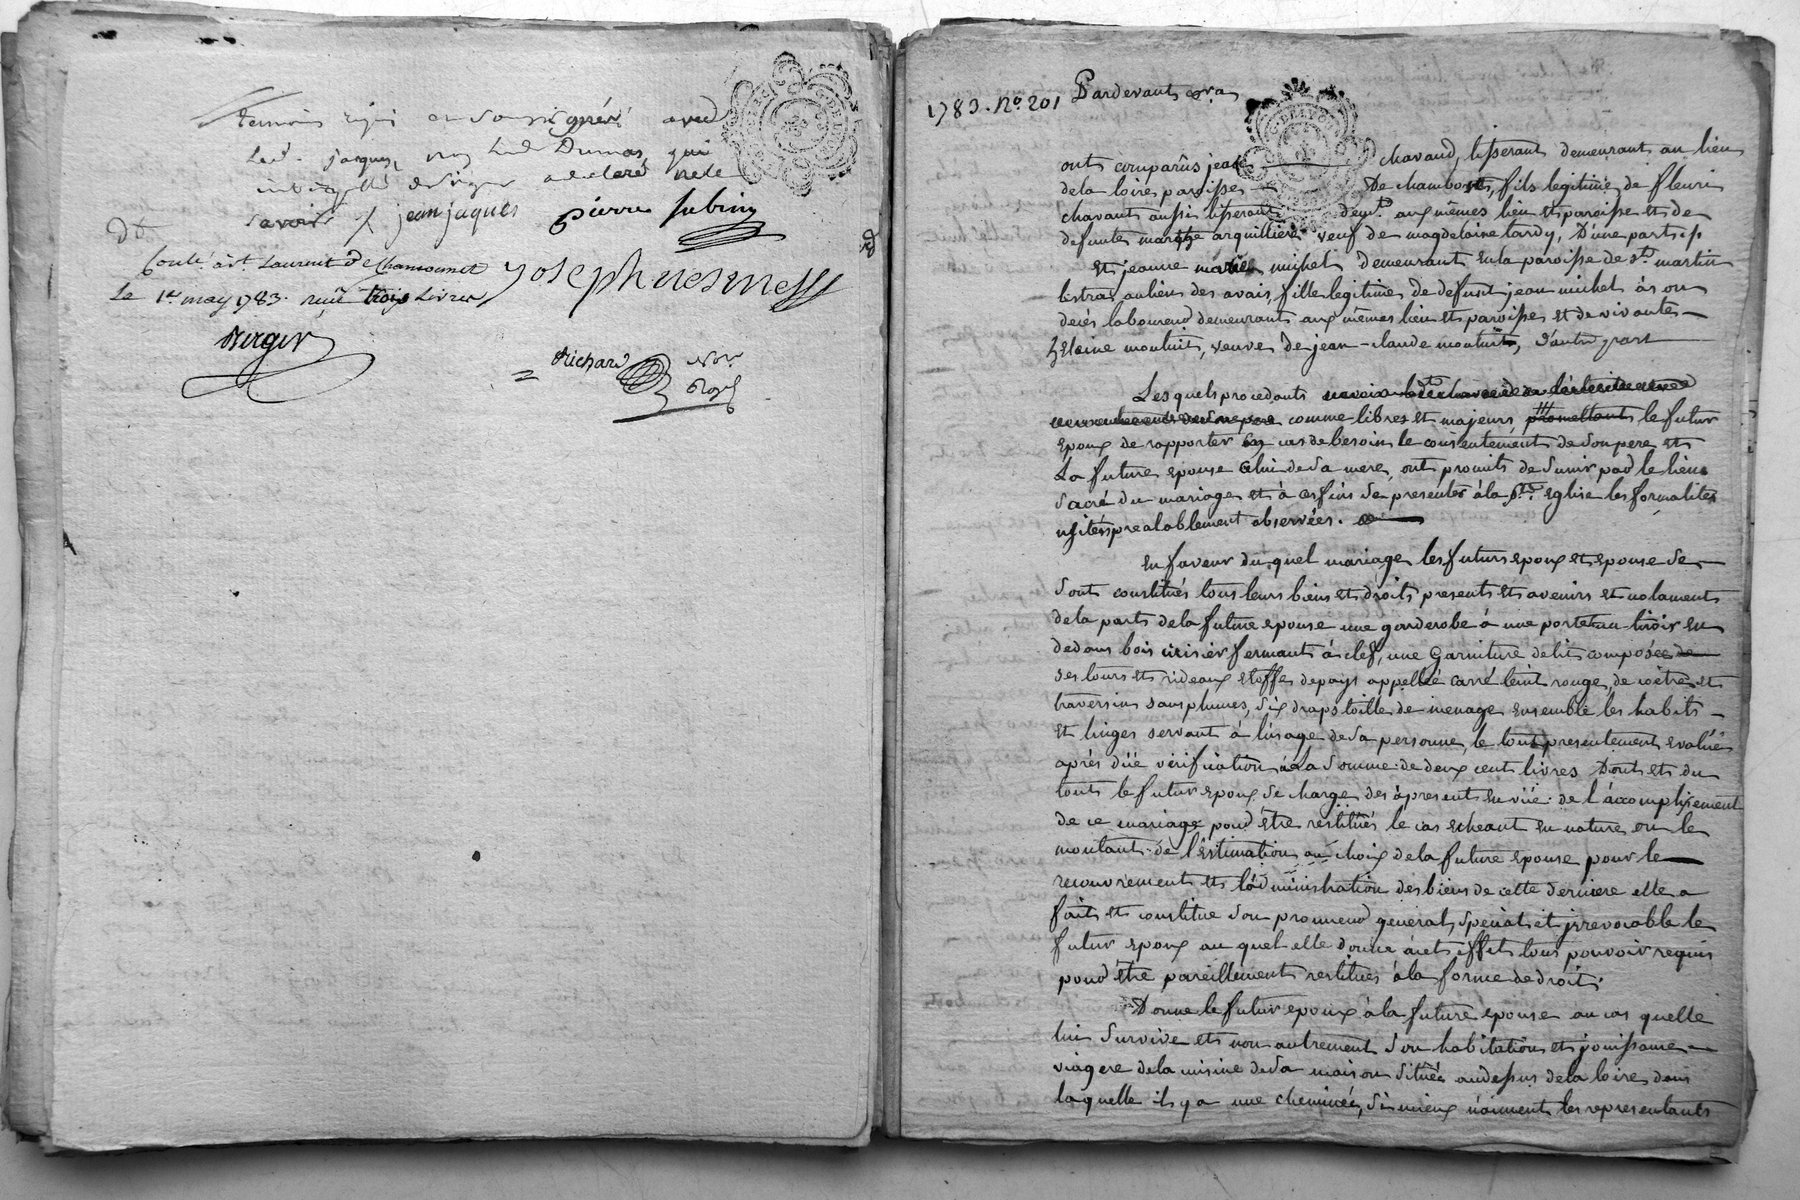 temoins requis et soussignés avec
led. jacques, non led Dumas qui
interpellé de signer a declaré ne le
savoir / jean jaques pierre subrin
Conté. à st Laurent de Chamousset
Le 1er may 1783. reçu trois Livres
joseph nesme
Berger
Richard Nore
Royl
1783. No 201
Pardevant &ra
ont comparûs jean chavand, tisserant demeurant au lieu
de la loire paroisse De chambost, fils legitime de fleuri
chavant aussi tisserant demt. aux mêmes lieu et paroisse et de
defunte marthe arquilliere veuf de magdelaine tardy, D'une part
Et jeanne marie michel demeurant en la paroisse de st martin
lestra au lieu des avais, fille legitime de defunt jean michel à son
decés laboureur demeurant aux mêmes lieu et paroisse et de vivante
helaine mouluit, veuve de jean-claude moutuit, d'autre part
Les quels procedants
comme libres et majeurs, promettant le futur
epoux de rapporter en cas de besoin le consentement de son pere et
La future epouse celui de sa mere, ont promits de s'unir par le lien
sacré du mariage et à ces fins se presenter à la Ste Eglise les formalités
usitées prealablement observées.
En faveur du quel mariage les futurs epoux et epouse se
sont constitués tous leurs biens et droits presents et avenirs et notament
de la part de la future epouse une garderobe à une porte un tiroir en
dedans bois cerisier fermant à clef, une Garniture de lit composée de
ses tours et rideaux etoffe de pays appellée carré teint rouge, de coëtre et
traversin sans plumes, six draps toille de menage ensemble les habits
et linges servant à l'usage de sa personne, le tout presentement evalué
après düe verification à La somme de deux cent livres Dont et du
tout le futur epoux se charge des àpresent en vüe de l'accomplissement
de ce mariage pour être restitués le cas echeant en nature ou le
montant de l'estimation au choix de la future epouse pour le
recouvrement et l'administration des biens de cette derniere elle a
fait et constitue son procureur general, special et irrevocable le
futur epoux au quel elle donne à cet effet tous pouvoir requis
pour être pareillement restitués à la forme de droit.
Donne le futur epoux à la future epouse au cas quelle
lui survive et non autrement son habitation et jouissance
viagere de la cuisine de sa maison située audessus de la loire dans
laquelle il y a une cheminée, si mieux n'aiment les representants